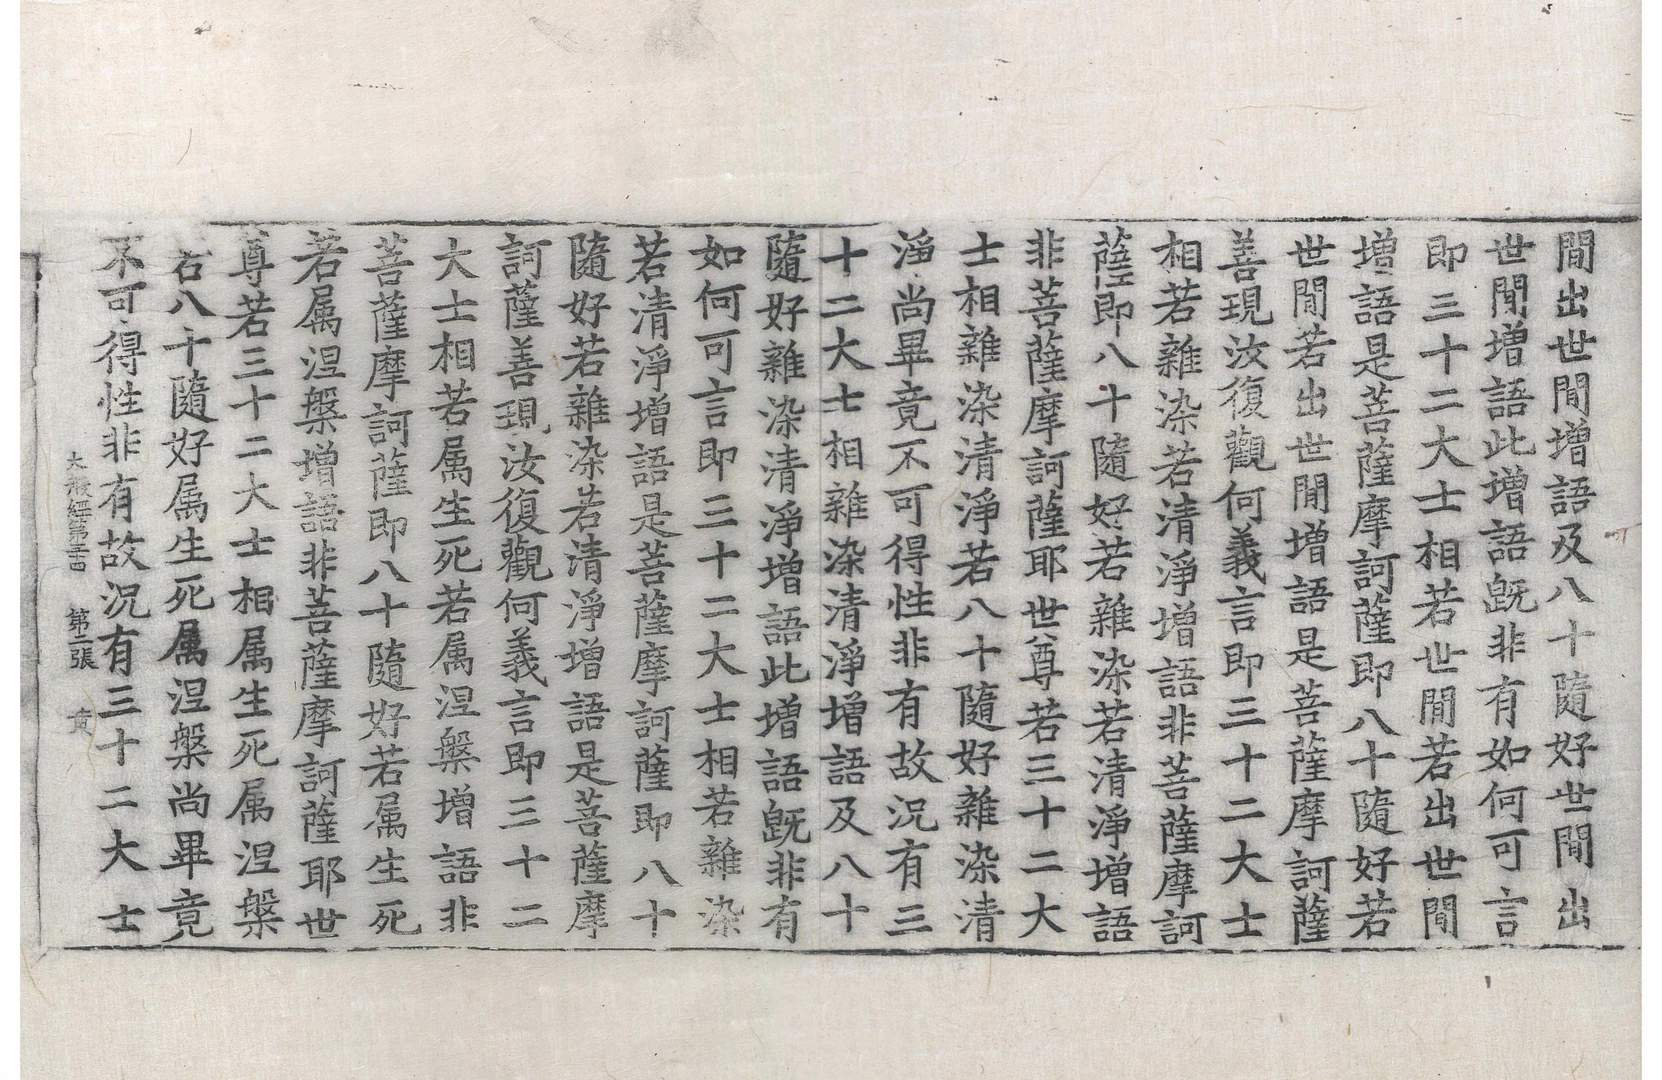 間出世間增語及八十隨好世間出
世間增語此增語既非有如何可言
即三十二大士相若世間若出世間
增語是菩薩摩訶薩即八十隨好若
世間若出世間增語是菩薩摩訶薩
善現汝復觀何義言即三十二大士
相若雜染若清淨增語非菩薩摩訶
薩即八十隨好若雜染若清淨增語
非菩薩摩訶薩耶世尊若三十二大
士相雜染清淨若八十隨好雜染清
淨尚畢竟不可得性非有故況有三
十二大士相雜染清淨增語及八十
隨好雜染清淨增語此增語既非有
如何可言即三十二大士相若雜染
若清淨增語是菩薩摩訶薩即八十
隨好若雜染若清淨增語是菩薩摩
訶薩善現汝復觀何義言即三十二
大士相若属生死若属涅槃增語非
菩薩摩訶薩即八十隨好若属生死
若属涅槃增語非菩薩摩訶薩耶世
尊若三十二大士相属生死属涅槃
若八十隨好属生死属涅槃尚畢竟
不可得性非有故況有三十二大士
大般經第 張